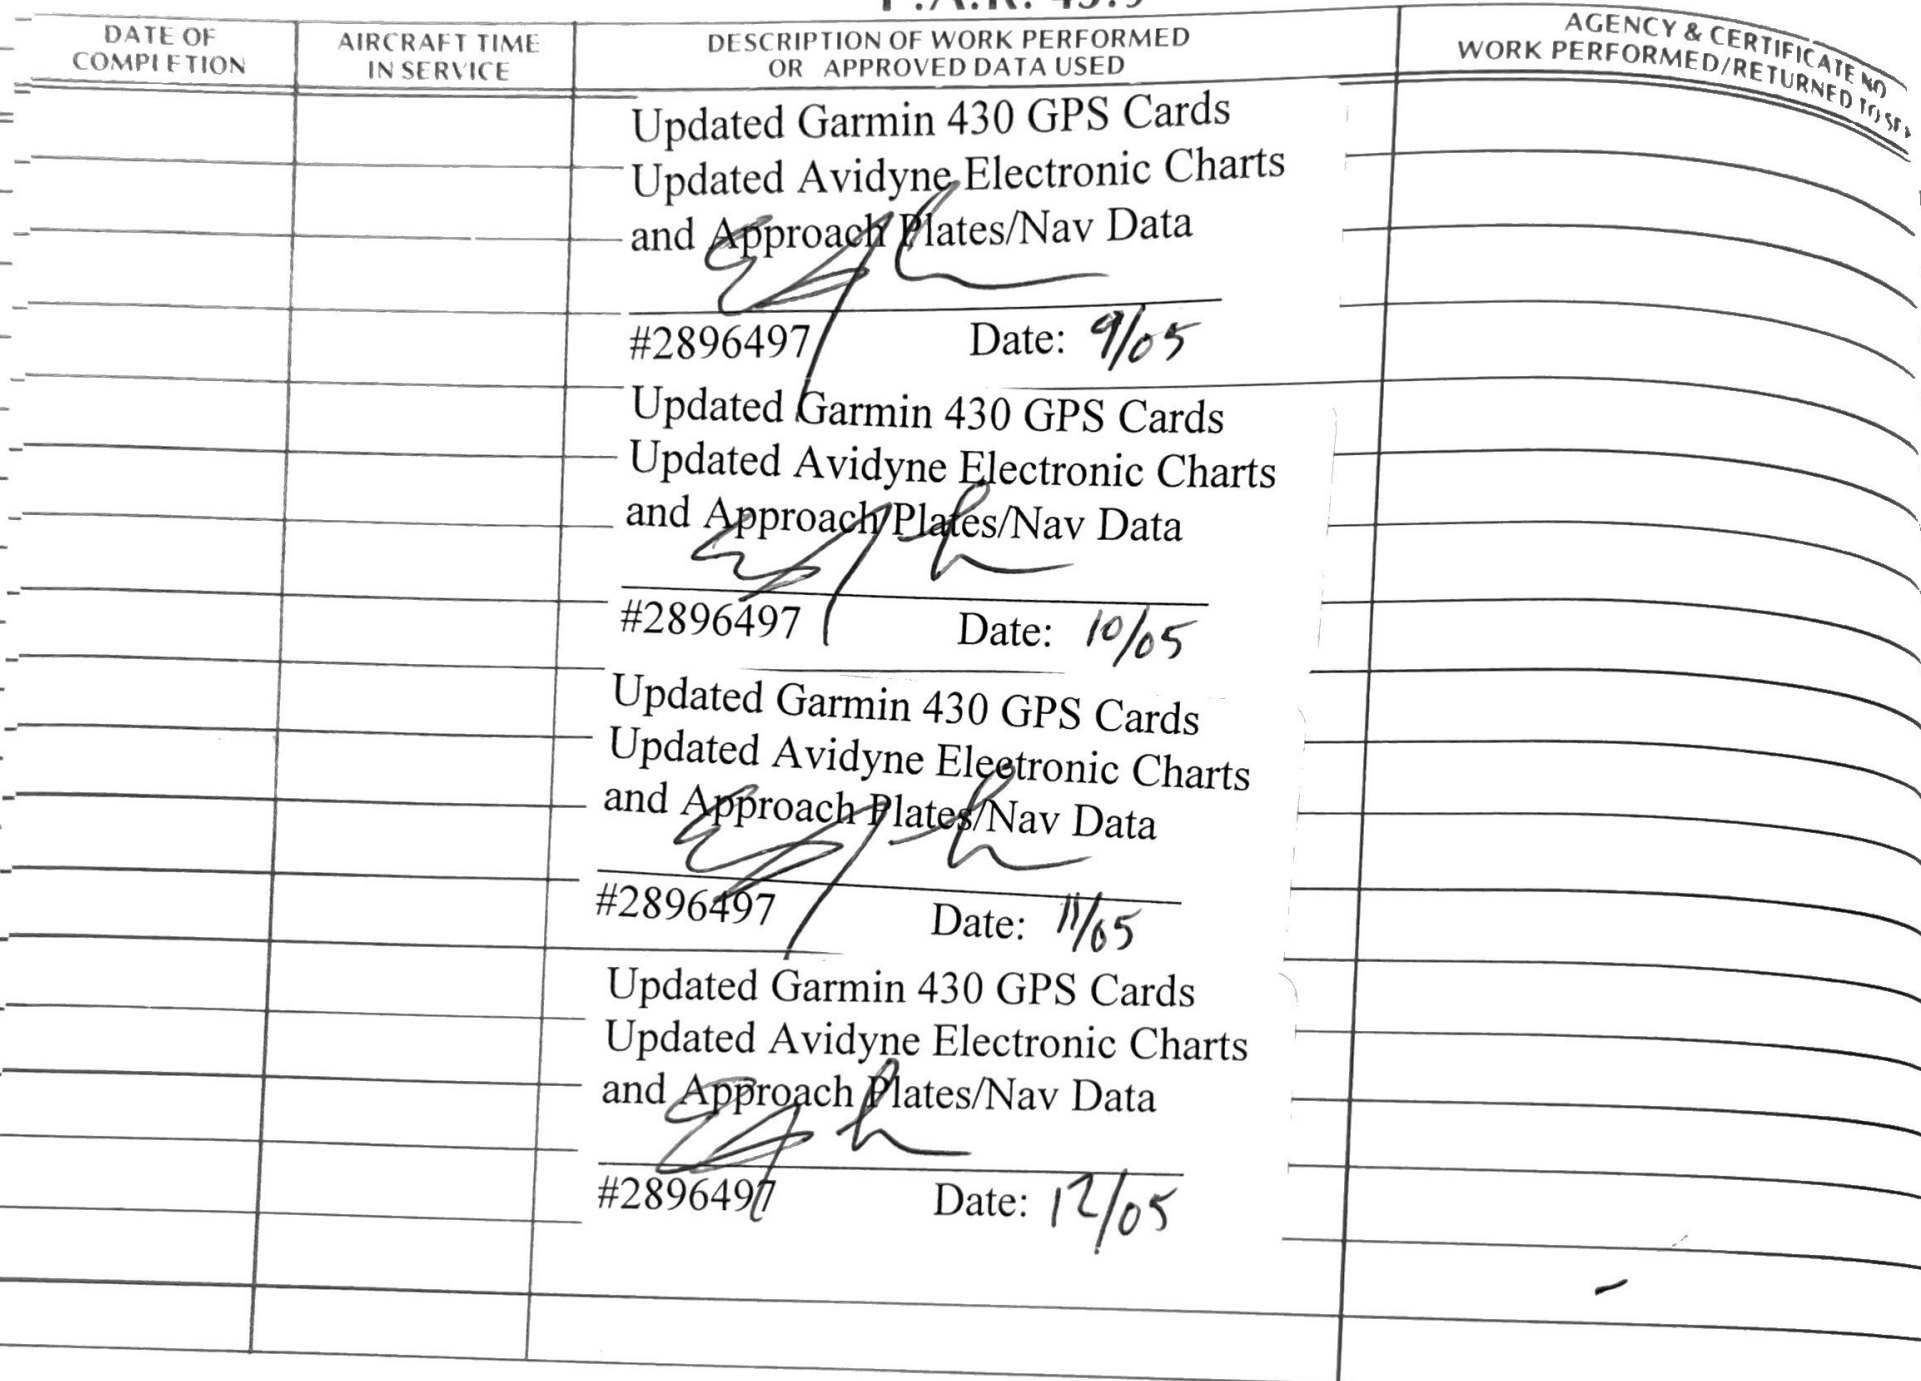 F.A.R. 43.9
DATE OF
COMPLETION
AIRCRAFT TIME
IN SERVICE
DESCRIPTION OF WORK PERFORMED
OR APPROVED DATA USED
AGENCY & CERTIFICATE NO
WORK PERFORMED/RETURNED TO
Updated Garmin 430 GPS Cards
Updated Avidyne Electronic Charts
and Approach Plates/Nav Data
#2896497 Date: 9/05
Updated Garmin 430 GPS Cards
Updated Avidyne Electronic Charts
and Approach Plates/Nav Data
#2896497 Date: 10/05
Updated Garmin 430 GPS Cards
Updated Avidyne Electronic Charts
and Approach Plates/Nav Data
#2896497 Date: 11/05
Updated Garmin 430 GPS Cards
Updated Avidyne Electronic Charts
and Approach Plates/Nav Data
#2896497 Date: 12/05